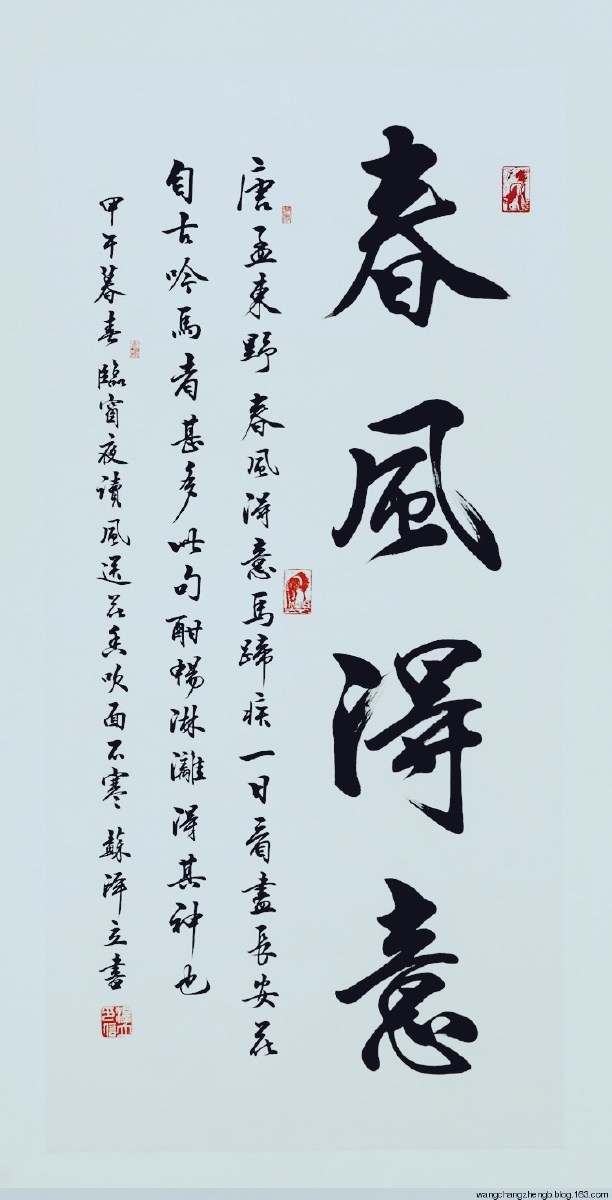 春風得意
唐孟東野春風得意馬蹄疾一日看盡長安花
自古吟馬者甚多此句酣暢淋灕得其神也
甲午暮春臨窗夜讀風送花香吹面不寒蘇澤立書
wangchangzhengb.blog.163.com